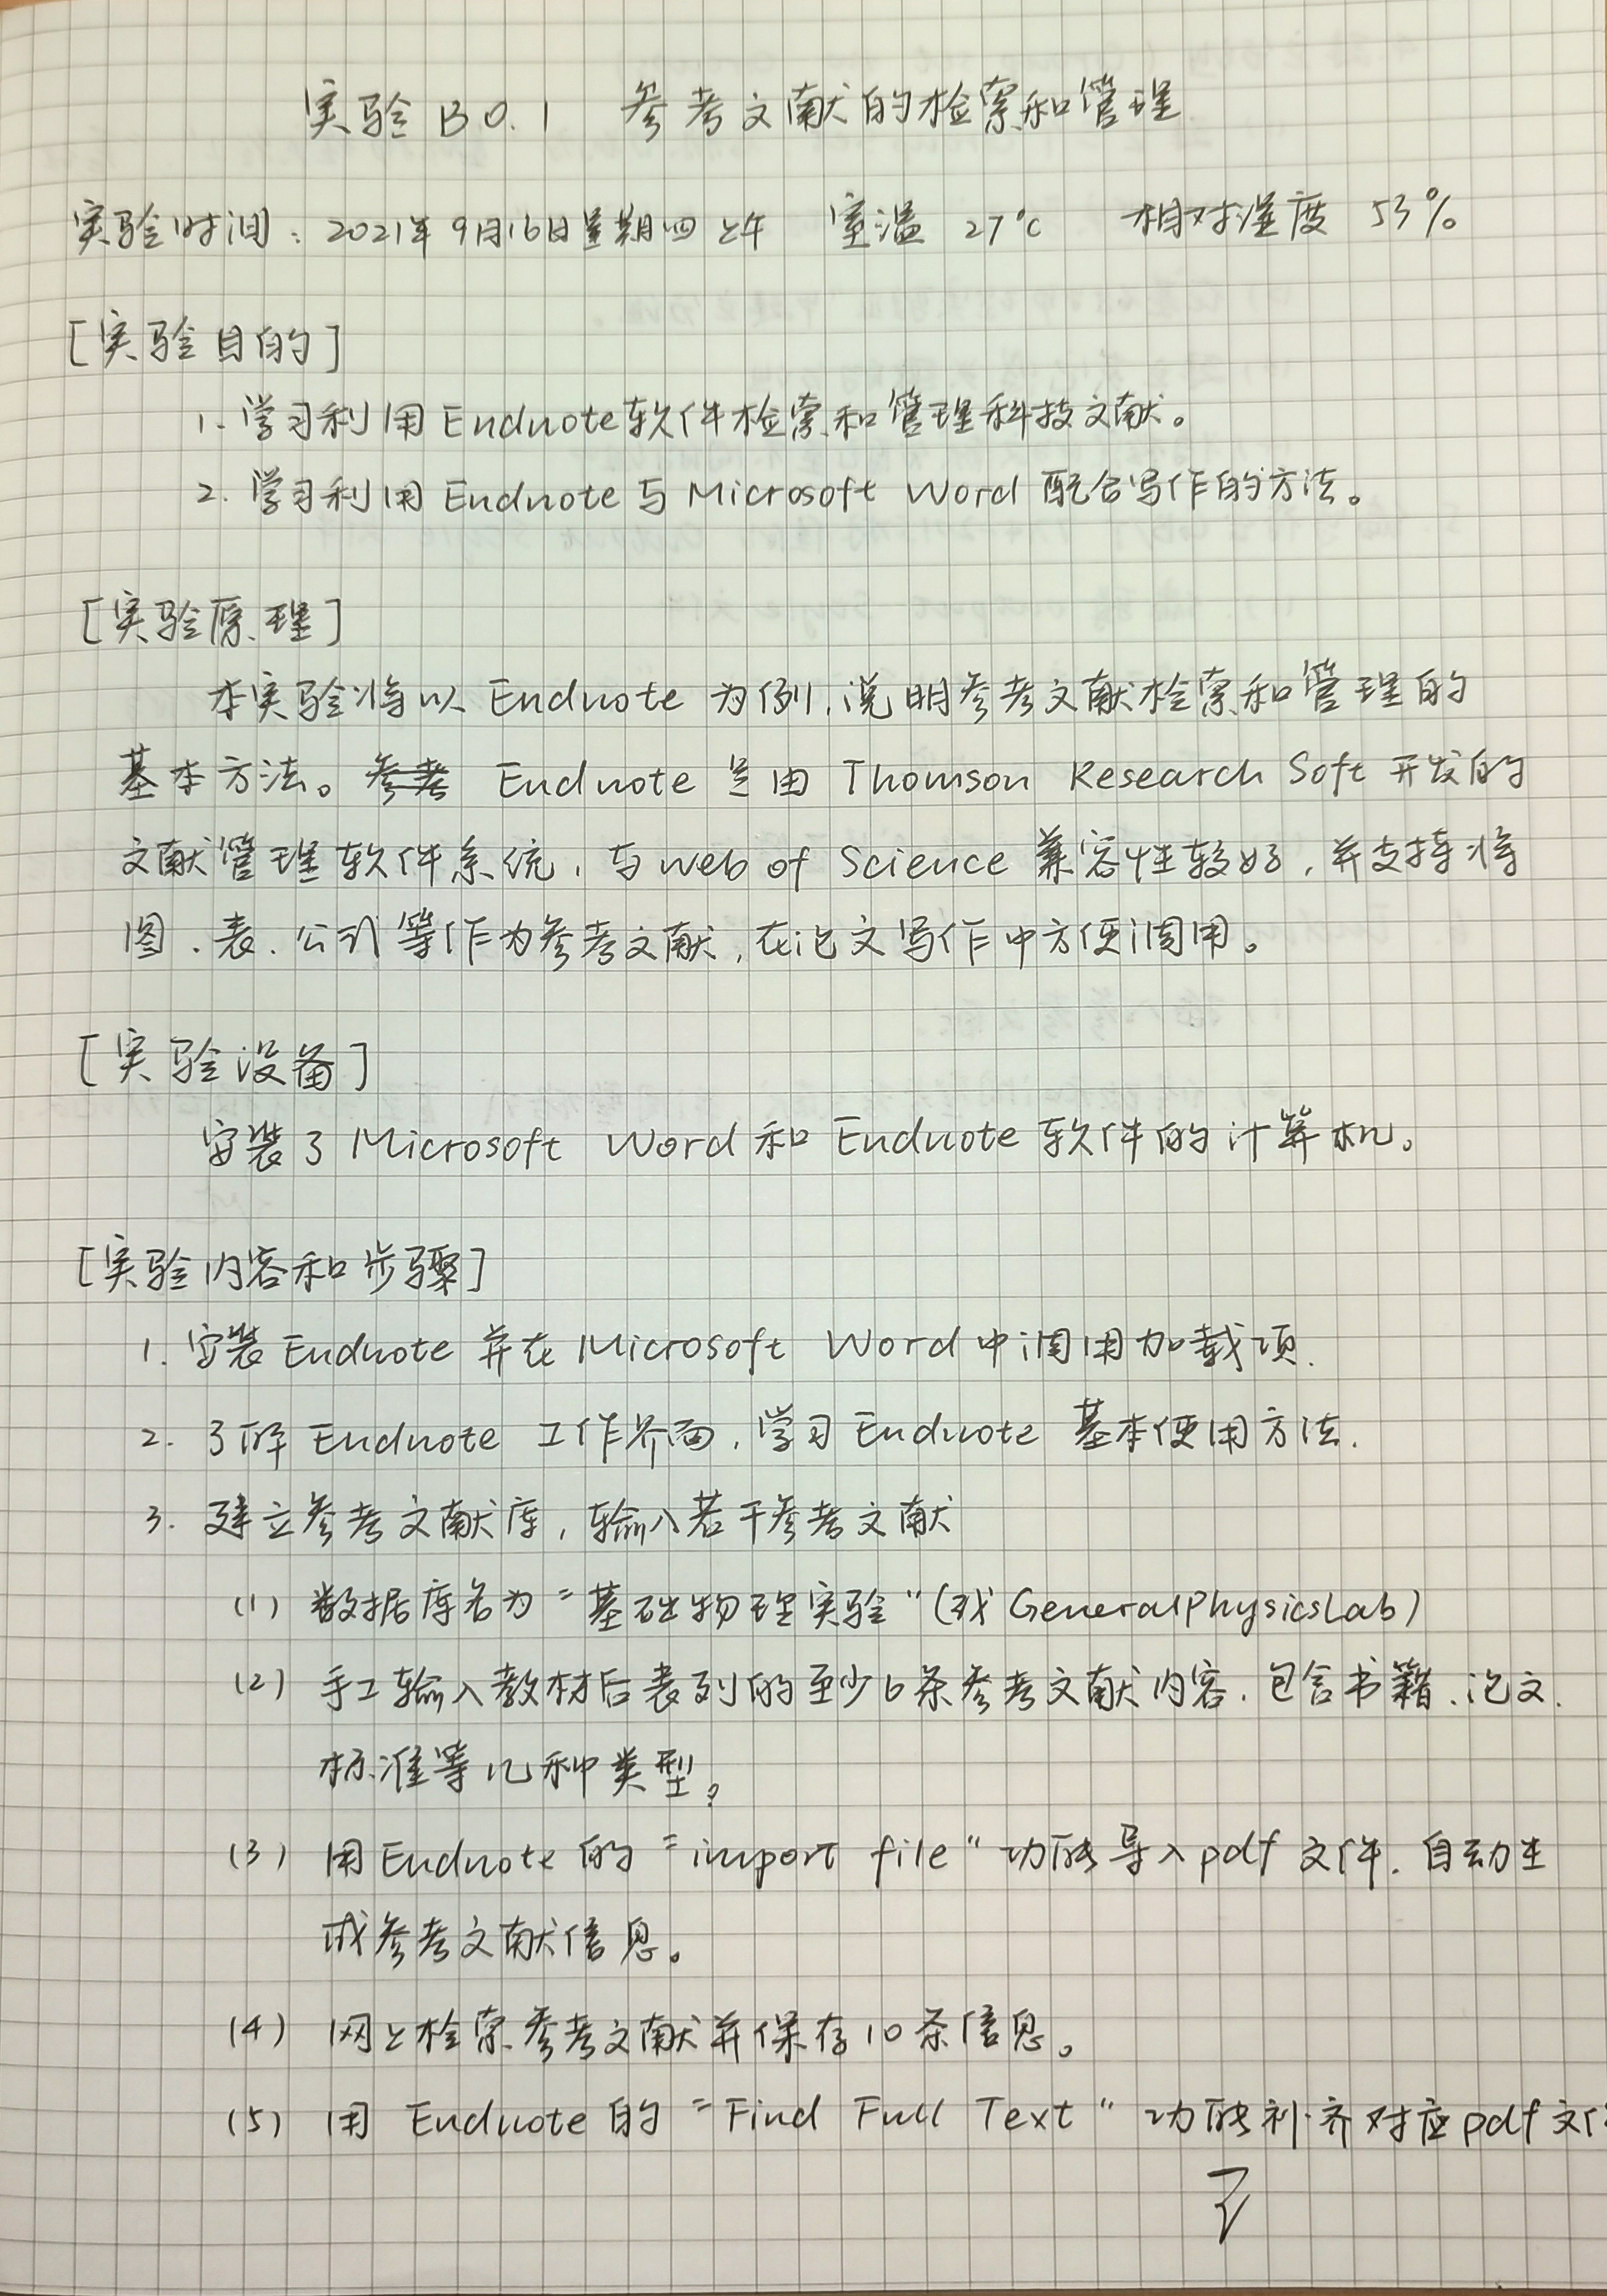 实验B0.1 参考文献的检索和管理
实验时间：2021年9月16日星期四上午 室温 27℃ 相对湿度 53%
[实验目的]
1. 学习利用Endnote软件检索和管理科技文献。
2. 学习利用Endnote与Microsoft Word配合写作的方法。
[实验原理]
本实验将以Endnote为例,说明参考文献检索和管理的
基本方法。Endnote是由Thomson Research Soft开发的
文献管理软件系统,与web of Science兼容性较好,并支持将
图、表、公式等作为参考文献,在论文写作中方便调用。
[实验设备]
安装了Microsoft Word和Endnote软件的计算机。
[实验内容和步骤]
1. 安装Endnote并在Microsoft Word中调用加载项.
2. 了解Endnote工作界面,学习Endnote基本使用方法.
3. 建立参考文献库,输入若干参考文献
(1) 数据库名为"基础物理实验"(或GeneralPhysicsLab)
(2) 手工输入教材后表列的至少6条参考文献内容,包含书籍、论文、
标准等几种类型。
(3) 用Endnote的"import file"功能导入pdf文件,自动生
成参考文献信息。
(4) 网上检索参考文献并保存10条信息。
(5) 用Endnote的"Find Full Text"功能补齐对应pdf文件